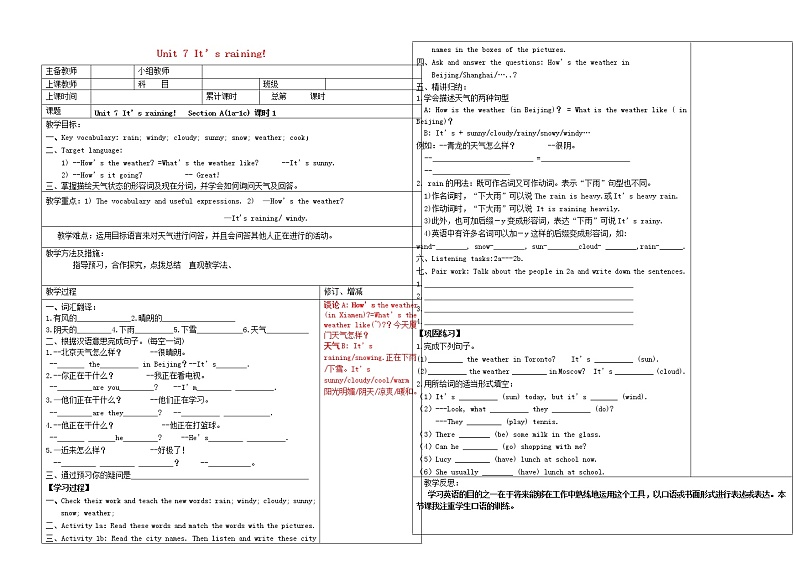 Unit 7 It’s raining!
主备教师
小组教师
上课教师
科 目
班级
上课时间
累计课时
总第 课时
课题
Unit 7 It’s raining! Section A(1a-1c) 课时1
教学目标:
一、Key vocabulary: rain; windy; cloudy; sunny; snow; weather; cook;
二、Target language:
1) --How’s the weather? =What’s the weather like? --It’s sunny.
2) --How’s it going? -- Great!
三、掌握描绘天气状态的形容词及现在分词，并学会如何询问天气及回答。
教学重点：1) The vocabulary and useful expressions. 2) —How’s the weather?
—It’s raining/ windy.
教学难点：运用目标语言来对天气进行问答，并且会问答其他人正在进行的活动。
教学方法及措施：
指导预习，合作探究，点拨总结 直观教学法、
教学过程
修订、增减
一、词汇翻译：
1.有风的__________2.晴朗的______________
3.阴天的_______4.下雨_______5.下雪________6.天气________
二、根据汉语意思完成句子。(每空一词)
1.--北京天气怎么样？ --很晴朗。
--______ the_______ in Beijing？--It’s______.
2.--你正在干什么？ --我正在看电视。
--_______are you_______? --I’m_______ ________.
3.—他们正在干什么？ --他们正在学习。
--________are they_______? --________ ________.
4.--他正在干什么？ --他正在打篮球。
--___________he_______? --He’s_______ _______.
5.—近来怎么样？ --好极了！
--_______ _______ _______? --_________。
三、通过预习你的疑问是____________________
【学习过程】
一、Check their work and teach the new words: rain; windy; cloudy; sunny;
snow; weather;
二、Activity 1a: Read these words and match the words with the pictures.
三、Activity 1b: Read the city names. Then listen and write these city
谈论A: How’s the weather
(in Xiamen)?=What’s the
weather like(~)?？今天厦
门天气怎样？
天气B: It’s
raining/snowing.正在下雨
/下雪。It’s
sunny/cloudy/cool/warm
阳光明媚/阴天/凉爽/暖和。
names in the boxes of the pictures.
四、Ask and answer the questions: How’s the weather in
Beijing/Shanghai/…..?
五、精讲归纳：
1.学会描述天气的两种句型
A: How is the weather (in Beijing)? = What is the weather like ( in
Beijing)?
B: It’s + sunny/cloudy/rainy/snowy/windy…
例如：--青龙的天气怎么样？ --很阴。
--____________________ =__________________
--________________
2. rain的用法：既可作名词又可作动词。表示“下雨”句型也不同。
1)作名词时，“下大雨”可以说 The rain is heavy.或It’s heavy rain.
2)作动词时，“下大雨”可以说 It is raining heavily.
3)此外，也可加后缀－y变成形容词，表达“下雨”可说 It’s rainy.
4)英语中有许多名词可以加－y这样的后缀变成形容词，如:
wind-_______, snow-_______, sun-________cloud- _______,rain-_____.
六、Listening tasks:2a---2b.
七、Pair work: Talk about the people in 2a and write down the sentences.
1.________________________________________
2.________________________________________
3.________________________________________
4.________________________________________
【巩固练习】
1.完成下列句子。
(1)________ the weather in Toronto? It’s ________ (sun).
(2)________ the weather ________in Moscow? It’s ________ (cloud).
2.用所给词的适当形式填空：
(1) It’s ________ (sun) today, but it’s ______ (wind).
(2) ---Look, what ________ they ________ (do)?
---They _______ (play) tennis.
(3) There _______ (be) some milk in the glass.
(4) Can he _______ (go) shopping with me?
(5) Lucy ________ (have) lunch at school now.
(6) She usually _______ (have) lunch at school.
教学反思：
学习英语的目的之一在于将来能够在工作中熟练地运用这个工具，以口语或书面形式进行表述或表达。本
节课我注重学生口语的训练。